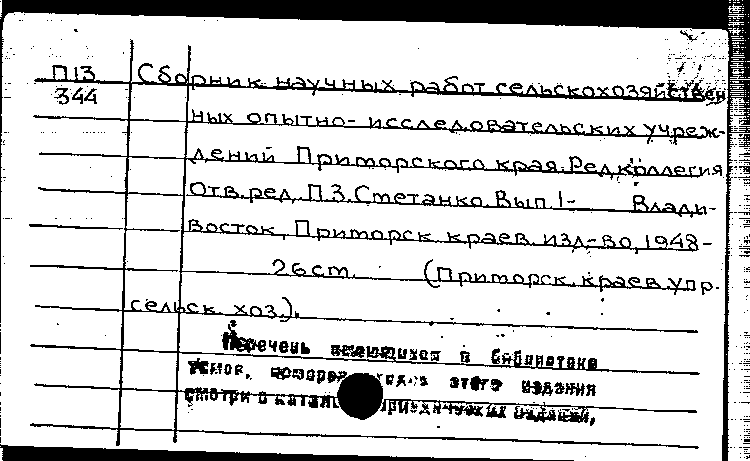 П13 Сборник научных работ сельскохозяйствен
344
ных опытно-исследовательских учреж-
дений Приморского края. Ред.коллегия
Отв.ред. П.З.Сметанко. Вып.1- Влади-
восток, Приморск. краев. изд-во, 1948-
26см. (Приморск. краев. упр.
сельск. хоз.).
Перечень имеющихся в библиотеке
томов, этого издания
смотри в каталоге периодических изданий,